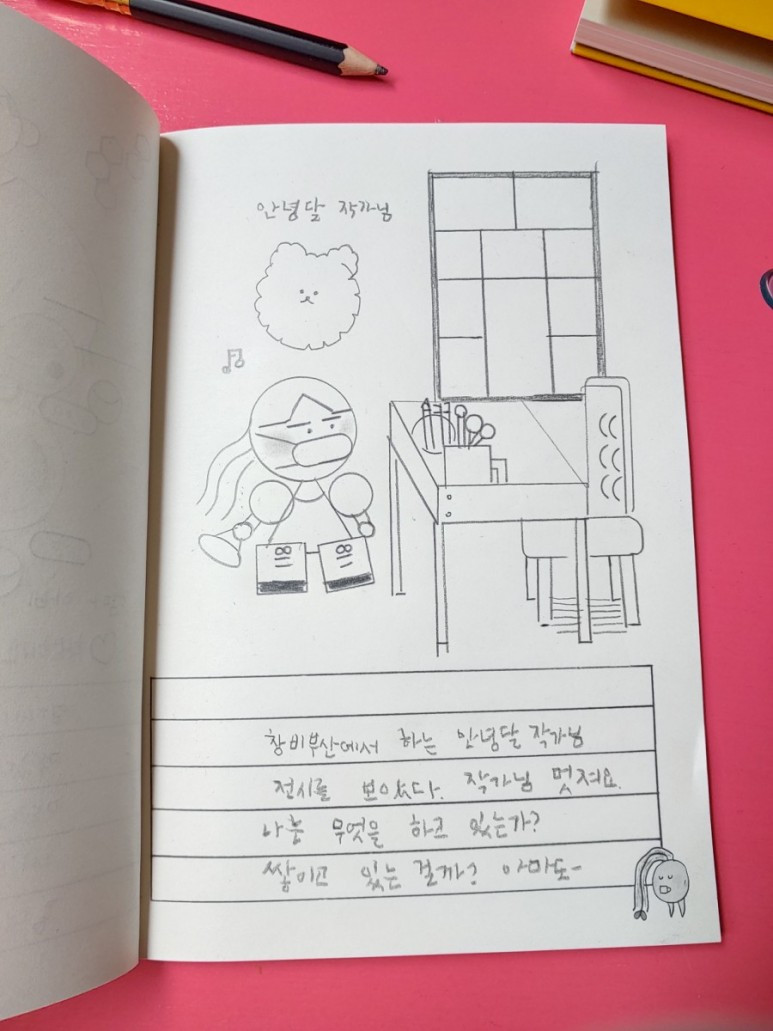 안녕달 작가님
창비부산에서 하는 안녕달 작가님
전시를 보았다. 작가님 멋져요.
나는 무엇을 하고 있는가?
쌓이고 있는 걸까? 아마도-